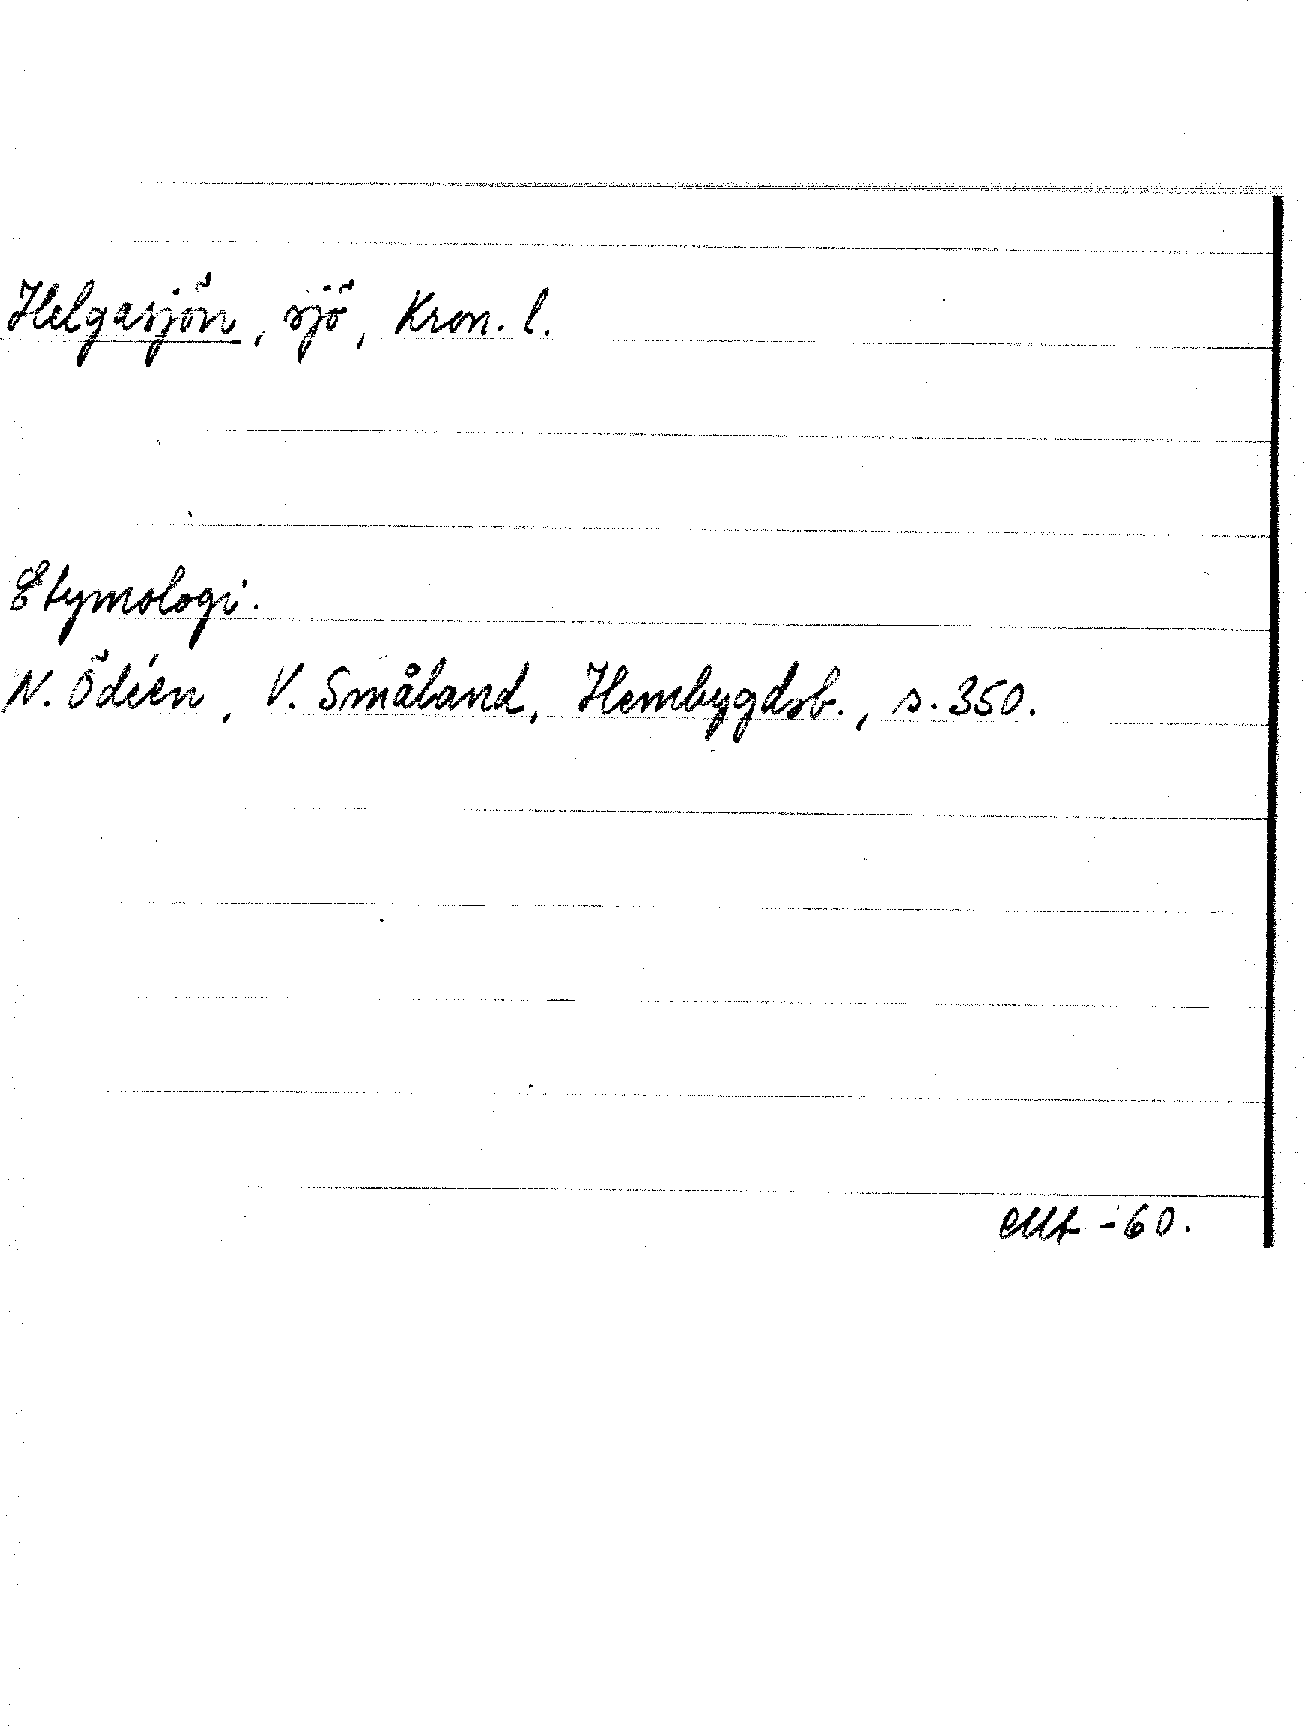 Helgasjön, sjö, Kron. l.
Etymologi.
N. Ödéen, V. Småland, Hembygdsb., s. 350.
-60.